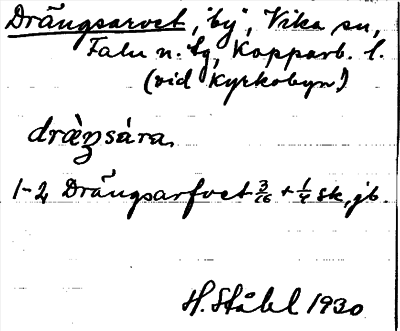 Drängsarvet, "by", Vika sn,
Falu n. tg, Kopparb. l.
(vid Kyrkobyn!)
dràŋsára
1-2 Drängsarfvet 3/16 + 1/4 sk, jb.
H. Ståhl 1930